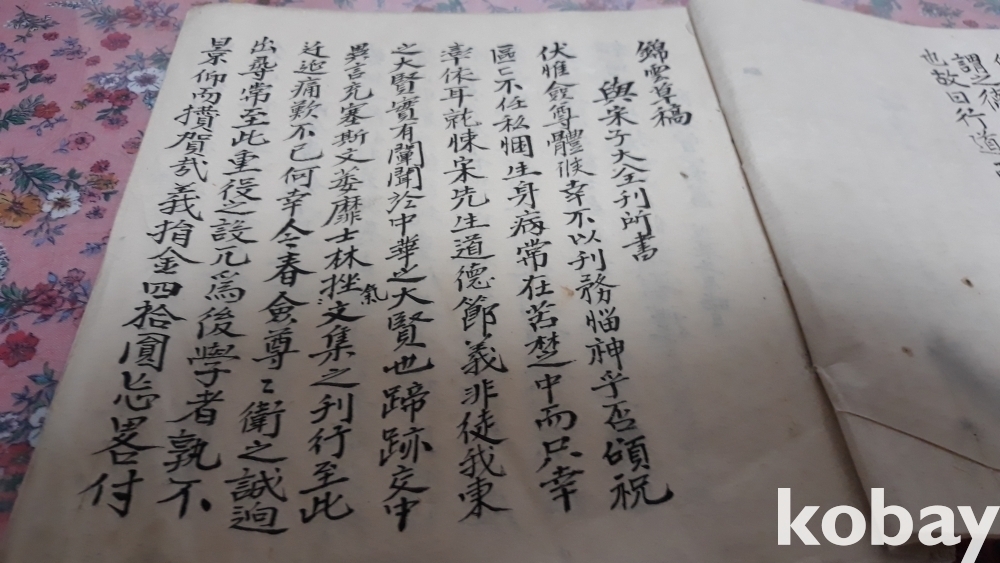 錦雲草稿
與宋子大全刊所書
伏惟僉尊體候幸不以刊務惱神乎否頌祝
區〻不任私悃生身病常在苦楚中而只幸
率依耳竊悚宋先生道德節義非徒我東
之大賢實有闡聞於中華之大賢也蹄跡交中
異言充塞斯文萎靡士林挫氣文集之刊行至此
迂延痛歎不已何幸今春僉尊〻衛之誠迥
出尋常至此重役之設凡爲後學者孰不
景仰而攢賀哉義捐金四拾圓忘畧付
謂之德
也故曰行道
kobay